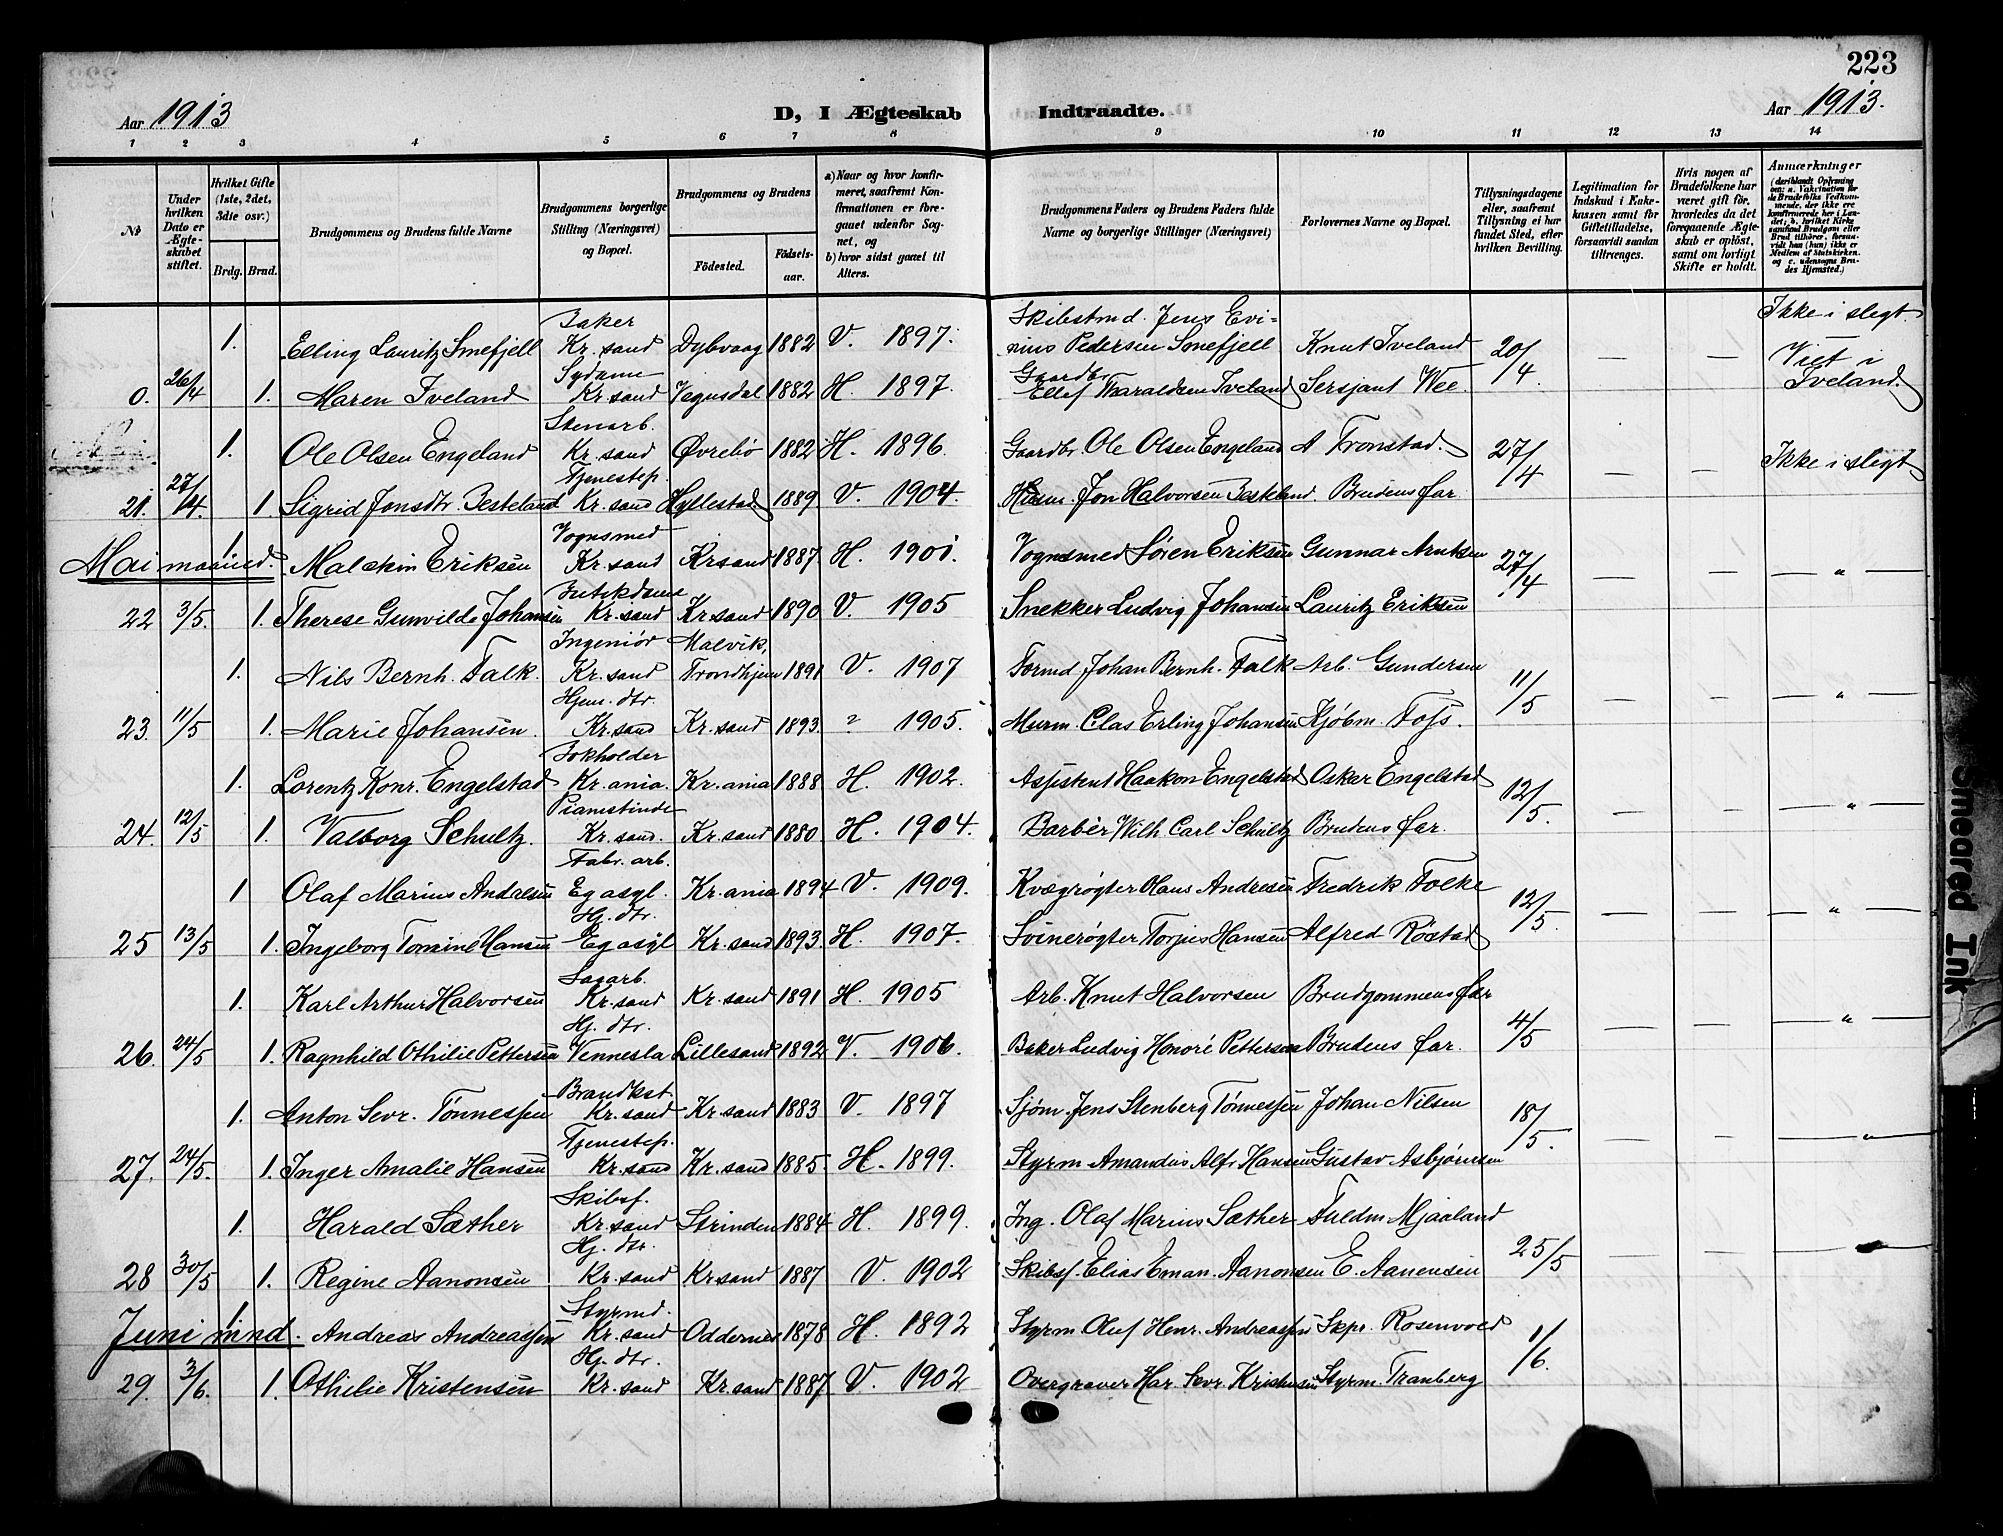 223
Aar 1913
D, I Ægteskab Indtraadte.
Aar 1913.
1 2 3 4 5 6 7 8 9 10 11 12 13 14
No
Under hvilken Dato er Ægteskabet stiftet.
Hvilket Gifte (1ste, 2det, 3die osv.)
Brdg. Brud.
Brudgommens og Brudens fulde Navne
Brudgommens borgerlige Stilling (Næringsvei) og Bopæl.
Brudgommens og Brudens
Fødested. Fødselsaar.
a) Naar og hvor konfirmeret, saafremt Konfirmationen er foregaaet udenfor Sognet, og
b) hvor sidst gaaet til Alters.
Brudgommens Faders og Brudens Faders fulde Navne og borgerlige Stillinger (Næringsvei)
Forlovernes Navne og Bopæl.
Tillysningsdagene eller, saafremt Tillysning ei har fundet Sted, efter hvilken Bevilling.
Legitimation for Indskud i Enkekassen samt for Giftetilladelse, forsaavidt saadan tiltrænges.
Hvis nogen af Brudefolkene har været gift før, hvorledes da det foregaaende Ægteskab er opløst, samt om lovligt Skifte er holdt.
Anmærkninger
(deriblandt Oplysning om: a. Vakcination for de Brudefolks Vedkommende, der ikke ere konfirmerede her i Landet; b. hvilket Kirkesamfund Brudgom eller Brud tilhører, forsaavidt han (hun) ikke er Medlem af Statskirken. og c. udensogns Brudes Hjemsted.)
1. Elling Lauritz Smefjell Baker Kr.sand Dybvaag 1882 V. 1897. Skibstmd. Jens Evinius Pedersen Smefjell Knut Iveland 20/4 — — Ikke i slegt.
0. 26/4 1. Maren Iveland Sydame Kr.sand Vegusdal 1882 H. 1897. Gaardbr. Ellef Taraldsen Iveland Sersjant Wee. Viet i Iveland.
1. Ole Olsen Engeland Stenarb. Kr.sand Øvrebø 1882 H. 1896. Gaardbr. Ole Olsen Engeland A Tronstad. 27/4 — — Ikke i slegt
21. 27/4. 1. Sigrid Jonsdtr. Besteland Tjenestep. Kr.sand Hyllestad 1889. V. 1904. Husm. Jon Halvorsen Besteland Brudens far.
Mai maaned.
1. Malekin Eriksen Vognsmed Kr.sand Kr.sand 1887. H. 1901. Vognsmed Søren Eriksen Gunnar Arntsen 27/4 — — "
22 3/5. 1. Therese Gunvilde Johansen Butikdame Kr.sand Kr.sand 1890 V. 1905 Snekker Ludvig Johansen Lauritz Eriksen
1. Nils Bernh. Falk. Ingeniør Kr.sand Malvik, Trondhjem 1891 V. 1907 Formd. Johan Bernh. Falk Arb. Gundersen 11/5 — — "
23. 11/5 1. Marie Johansen. Hjem. dtr. Kr.sand Kr.sand 1893. " 1905. Murm. Clas Erling Johansen Kjøbm. Foss.
1. Lorentz Konr. Engelstad Bokholder Kr.ania. Kr.ania 1888. H. 1902. Assistent Haakon Engelstad Oskar Engelstad 12/5. — — "
24. 12/5 1. Valborg Schultz. Pianistinde Kr.sand. Kr.sand 1880. H. 1904. Barbér Wilh. Carl Schultz Brudens far.
1 Olaf Marius Andresen Fabr. arb. Eg asyl. Kr.ania 1894 V. 1909. Kvægrøgter Hans Andresen Fredrik Folke 12/5. — — "
25 13/5 1. Ingeborg Tomine Hansen Hj. dtr. Eg asyl Kr.sand 1893. H. 1907. Svinerøgter Torjus Hansen Alfred Røstad
1. Karl Arthur Halvorsen Sagarb. Kr.sand Kr.sand 1891 H. 1905 Arb. Knut Halvorsen Brudgommens far 4/5 — — "
26. 24/5 1. Ragnhild Othilie Pettersen Hj. dtr. Vennesla Lillesand 1892 V. 1906. Baker Ludvig Honoré Pettersen Brudens far.
1. Anton Sevr. Tønnessen Brandkst. Kr.sand Kr.sand 1883 V. 1897 Sjøm. Jens Stenberg Tønnessen Johan Nilsen 18/5. — — "
27. 24/5. 1. Inger Amalie Hansen Tjenestep. Kr.sand Kr.sand 1885. H. 1899. Styrm Amandus Alfr Hansen Gustav Asbjørnsen
1. Harald Sæther Skibsf. Kr.sand Strinden 1884 H. 1899. Ing. Olaf Marius Sæther Fuldm Mjaaland 25/5 — —
28 30/5 1. Regine Aanonsen Hj. dtr. Kr.sand Kr.sand 1887 V. 1902 Skibsf. Elias Eman. Aanonsen E. Aanensen
Juni mnd.
1. Andreas Andreassen Styrmd. Kr.sand Oddernes 1878 H. 1892 Styrm. Oluf Henr. Andreassen Skpr. Rosenvold 1/6.
29. 3/6. 1. Othilie Kristensen Hj. dtr. Kr.sand Kr.sand 1887 V. 1902 Overgraver Har. Sevr. Kristensen Styrm. Tranberg
Smeared Ink